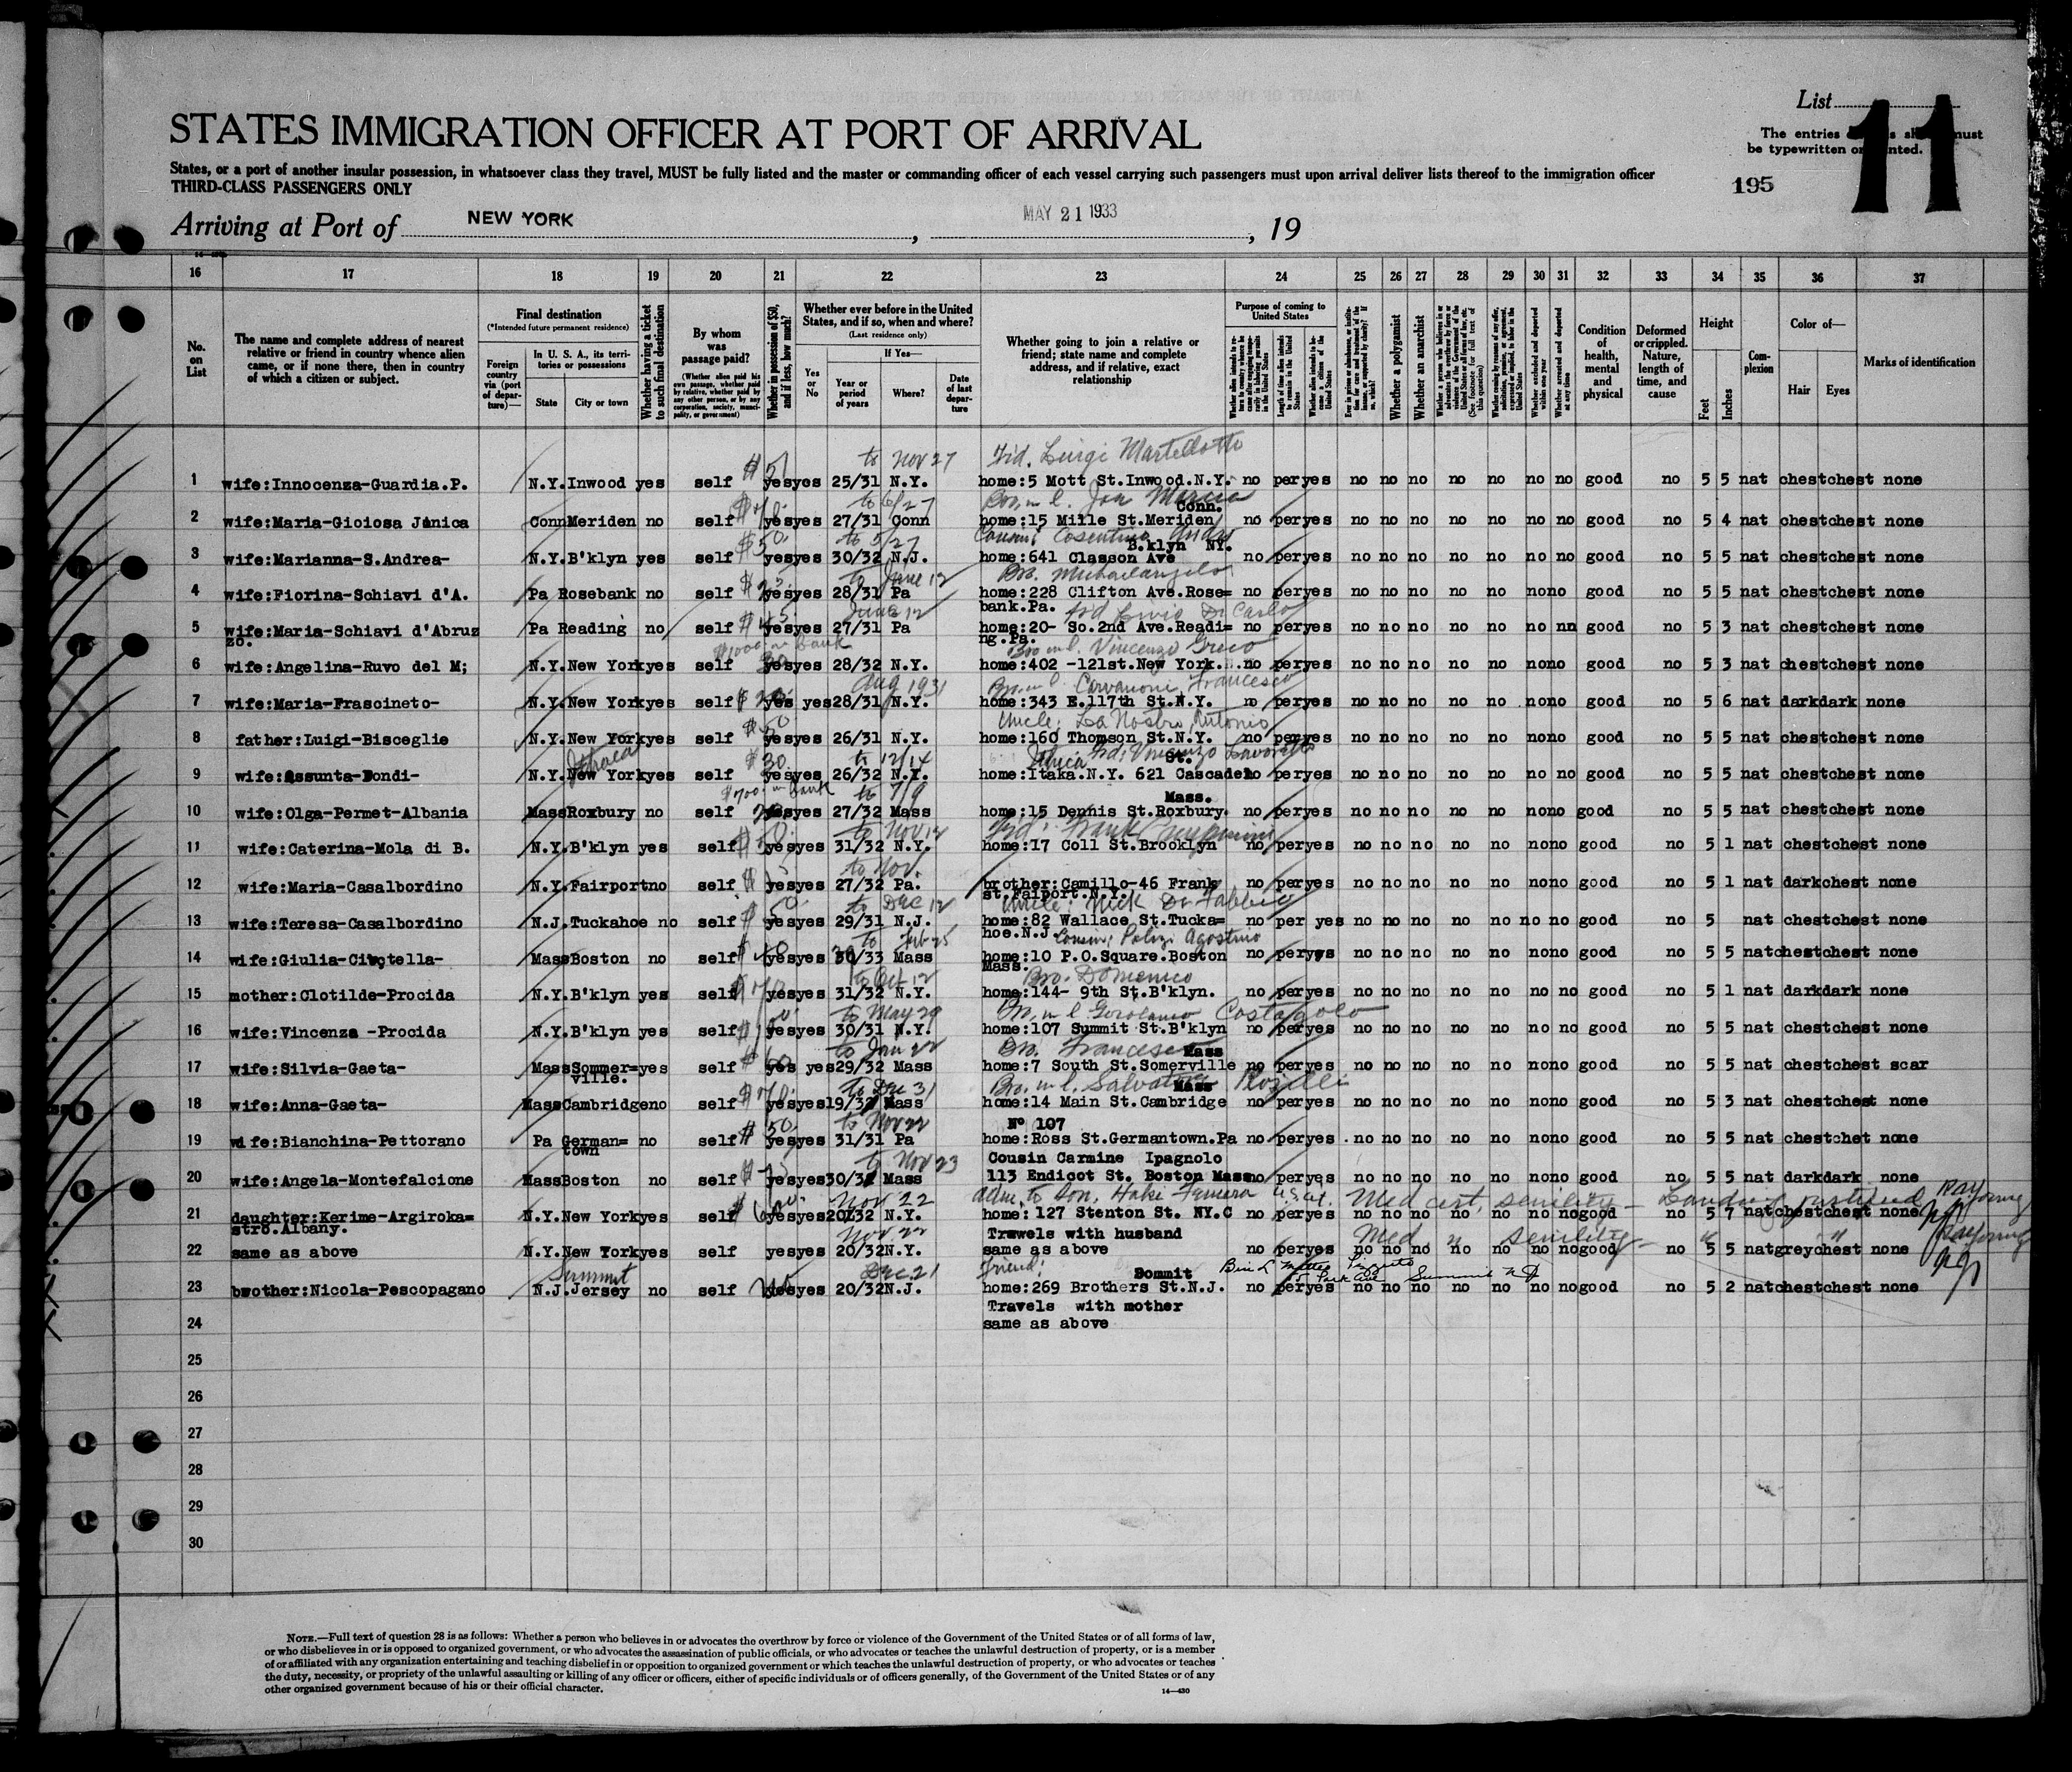 List
11
STATES IMMIGRATION OFFICER AT PORT OF ARRIVAL
The entries must
be typewritten or
States, or a port of another insular possession, in whatsoever class they travel, MUST be fully listed and the master or commanding officer of each vessel carrying such passengers must upon arrival deliver lists thereof to the immigration officer
THIRD-CLASS PASSENGERS ONLY
195
Arriving at Port of NEW YORK , MAY 21 1933 , 19
16 17 18 19 20 21 22 23 24 25 26 27 28 29 30 31 32 33 34 35 36 37
No. on List
The name and complete address of nearest relative or friend in country whence alien came, or if none there, then in country of which a citizen or subject.
Final destination
(*Intended future permanent residence)
Foreign country via (port of departure)—
In U. S. A., its territories or possessions
State
City or town
Whether having a ticket to such final destination
By whom was passage paid?
(Whether alien paid his own passage, whether paid by relative, whether paid by any other person, or by any corporation, society, municipality, or government)
Whether in possession of $50, and if less, how much?
Whether ever before in the United States, and if so, when and where?
(Last residence only)
Yes or No
If Yes—
Year or period of years
Where?
Date of last departure
Whether going to join a relative or friend; state name and complete address, and if relative, exact relationship
Purpose of coming to United States
Whether a polygamist
Whether an anarchist
Condition of health, mental and physical
Deformed or crippled. Nature, length of time, and cause
Height
Feet
Inches
Complexion
Color of—
Hair
Eyes
Marks of identification
to Nov 27 Luigi Martellotto
1 wife:Innocenza-Guardia.P. N.Y. Inwood yes self $ yes yes 25/31 N.Y. home:5 Mott St.Inwood.N.Y. no per yes no no no no no no no good no 5 5 nat chest chest none
to 6/27 Conn.
2 wife:Maria-Gioiosa Jonica Conn Meriden no self yes yes 27/31 Conn home:15 Mille St.Meridenno per yes no no no no no no no good no 5 4 nat chest chest none
$50 to 5/27 Cousin: Cosentino B.klyn NY.
3 wife:Marianna-S.Andrea- N.Y. B'klyn yes self yes yes 30/32 N.J. home:641 Classon Ave no per yes no no no no no no no good no 5 5 nat chest chest none
to June 12 Bro. Michaelangelo
4 wife:Fiorina-Schiavi d'A. Pa Rosebank no self yes yes 28/31 Pa home:228 Clifton Ave.Rose= no per yes no no no no no no no good no 5 5 nat chest chest none
bank.Pa. Di Carlo
5 wife:Maria-Schiavi d'Abruz Pa Reading no self yes yes 27/31 Pa home:20- So.2nd Ave.Readi= no per yes no no no no no no nn good no 5 3 nat chest chest none
zo. $1000 in bank ng.Pa. Bro in l. Vincenzo Greco
6 wife:Angelina-Ruvo del M; N.Y. New York yes self yes yes 28/32 N.Y. home:402 -121st.New York. no per yes no no no no no no no good no 5 3 nat chest chest none
Aug 1931 Francesco
7 wife:Maria-Frascineto- N.Y. New York yes self yes yes 28/31 N.Y. home:343 E.117th St.N.Y. no per yes no no no no no no no good no 5 6 nat dark dark none
Uncle: La Nostro Antonio
8 father:Luigi-Bisceglie N.Y. New York yes self yes yes 26/31 N.Y. home:160 Thomson St.N.Y. no per yes no no no no no no no good no 5 5 nat chest chest none
$30 to 12/14 St.
9 wife:Assunta-Dondi- N.Y. New York yes self yes yes 26/32 N.Y. home:Itaka.N.Y. 621 Cascade no per yes no no no no no no no good no 5 5 nat chest chest none
$700 in bank to 7/9 Mass.
10 wife:Olga-Permet-Albania Mass Roxbury no self yes yes 27/32 Mass home:15 Dennis St.Roxbury. no per yes no no no no no no no good no 5 5 nat chest chest none
to Nov 12 Frank
11 wife:Caterina-Mola di B. N.Y. B'klyn yes self yes yes 31/32 N.Y. home:17 Coll St.Brooklyn no per yes no no no no no no no good no 5 1 nat chest chest none
to Nov.
12 wife:Maria-Casalbordino N.Y. Fairport no self yes yes 27/32 Pa. brother:Camillo-46 Frank no per yes no no no no no no no good no 5 1 nat dark chest none
to Dec 12 st.Faiport.N.Y. Uncle: Nick Di Fabbio
13 wife:Teresa-Casalbordino N.J. Tuckahoe no self yes yes 29/31 N.J. home:82 Wallace St.Tucka= no per yes no no no no no no no good no 5 nat chest chest none
to Feb 25 hoe.N.J. Cousin: Polizi Agostino
14 wife:Giulia-Civtella- Mass Boston no self yes yes 30/33 Mass home:10 P.O.Square.Boston no per yes no no no no no no no good no 5 5 nat chest chest none
to Oct 12 Mass. Bro. Domenico
15 mother:Clotilde-Procida N.Y. B'klyn yes self yes yes 31/32 N.Y. home:144- 9th St.B'klyn. no per yes no no no no no no no good no 5 1 nat dark dark none
to May 29 Bro. in l. Gerolamo Costagolo
16 wife:Vincenza -Procida N.Y. B'klyn yes self yes yes 30/31 N.Y. home:107 Summit St.B'klyn no per yes no no no no no no no good no 5 5 nat chest chest none
to Jan 22 Bro. Francesco Mass
17 wife:Silvia-Gaeta- Mass Sommer= yes self yes yes 29/32 Mass home:7 South St.Somerville no per yes no no no no no no no good no 5 5 nat chest chest scar
ville. to Dec 31 Bro. in l. Salvatore Mass
18 wife:Anna-Gaeta- Mass Cambridge no self yes yes 19/32 Mass home:14 Main St.Cambridge no per yes no no no no no no no good no 5 3 nat chest chest none
$50 to Nov 22 No 107
19 wife:Bianchina-Pettorano Pa German= no self yes yes 31/31 Pa home:Ross St.Germantown.Pa no per yes no no no no no no no good no 5 5 nat chest chet none
town to Nov 23 Cousin Carmine Ipagnolo
20 wife:Angela-Montefalcione Mass Boston no self yes yes 30/3 Mass 113 Endicot St. Boston Mass no per yes no no no no no no no good no 5 5 nat dark dark none
Nov 22 adm. to Son, Med cert. senility
21 daughter:Kerime-Argiroka= N.Y. New York yes self yes yes 20/32 N.Y. home: 127 Stenton St. NY.C no per yes no no no no no no no good no 5 7 nat chest chest none
stro.Albany. Nov 22 Travels with husband Med " senility
22 same as above N.Y. New York yes self yes yes 20/32 N.Y. same as above no per yes no no no no no no no good no 5 5 nat grey chest none
Summit Dec. 21 friend: Dommit Park Ave Summit N J
23 brother:Nicola-Pescopagano N.J. Jersey no self yes yes 20/32 N.J. home:269 Brothers St.N.J. no per yes no no no no no no no good no 5 2 nat chest chest none
Travels with mother
24 same as above
25
26
27
28
29
30
NOTE.—Full text of question 28 is as follows: Whether a person who believes in or advocates the overthrow by force or violence of the Government of the United States or of all forms of law,
or who disbelieves in or is opposed to organized government, or who advocates the assassination of public officials, or who advocates or teaches the unlawful destruction of property, or is a member
of or affiliated with any organization entertaining and teaching disbelief in or opposition to organized government or which teaches the unlawful destruction of property, or who advocates or teaches
the duty, necessity, or propriety of the unlawful assaulting or killing of any officer or officers, either of specific individuals or of officers generally, of the Government of the United States or of any
other organized government because of his or their official character.
14—430